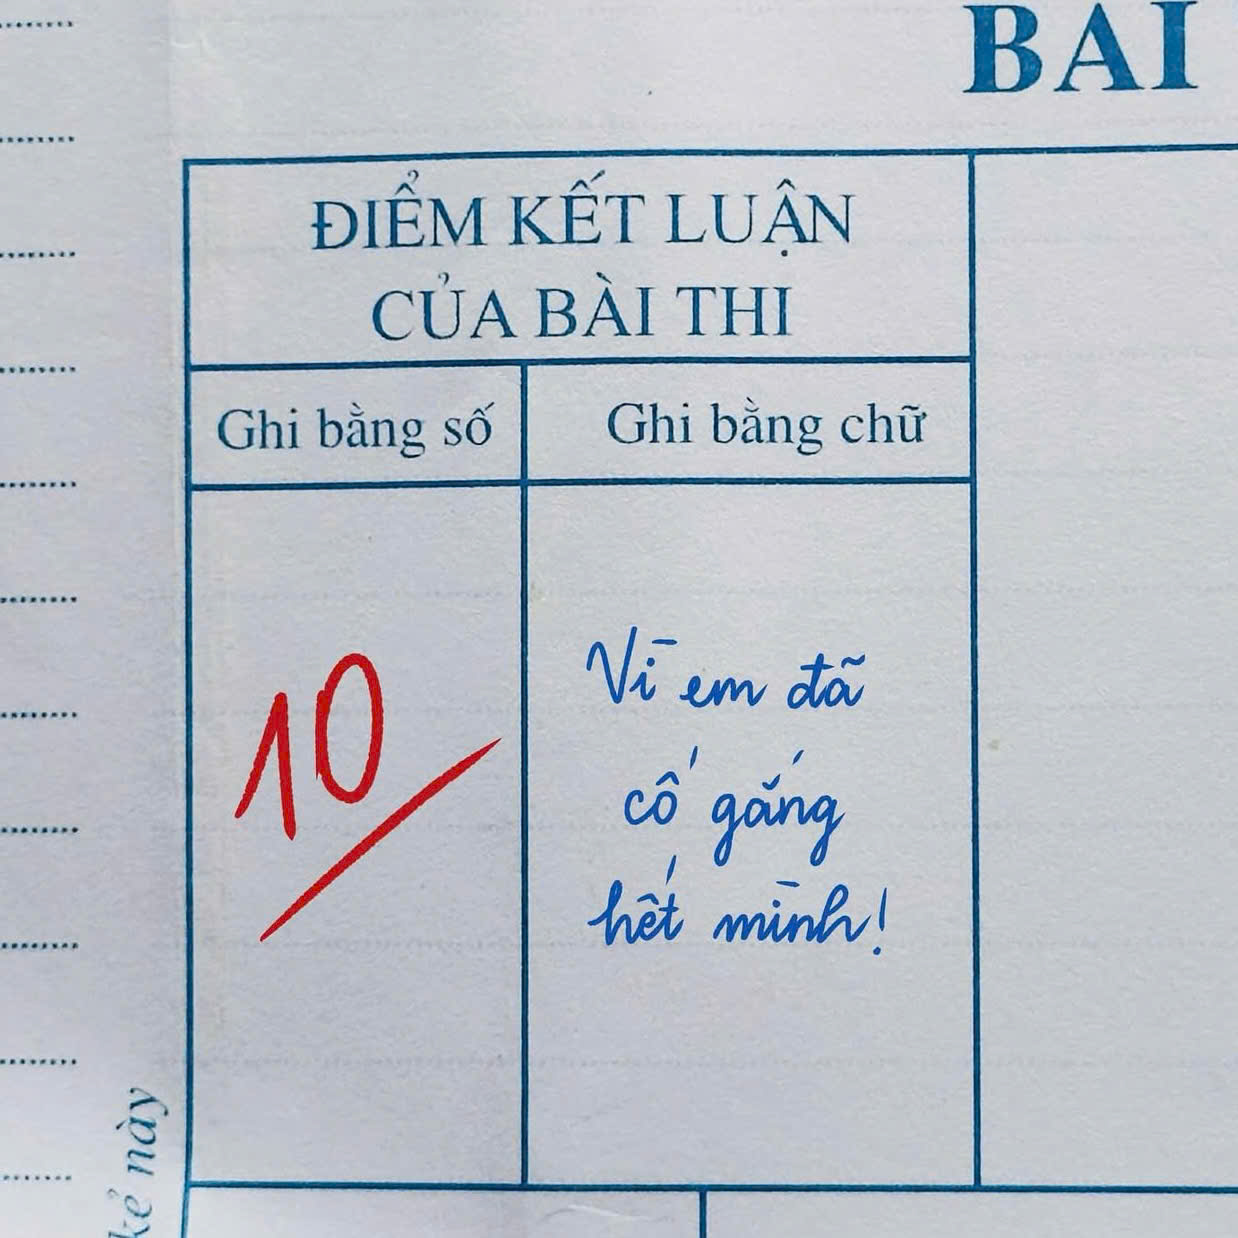 BAI
ĐIỂM KẾT LUẬN
CỦA BÀI THI
Ghi bằng số
Ghi bằng chữ
10
Vì em đã
cố gắng
hết mình!
kẻ này